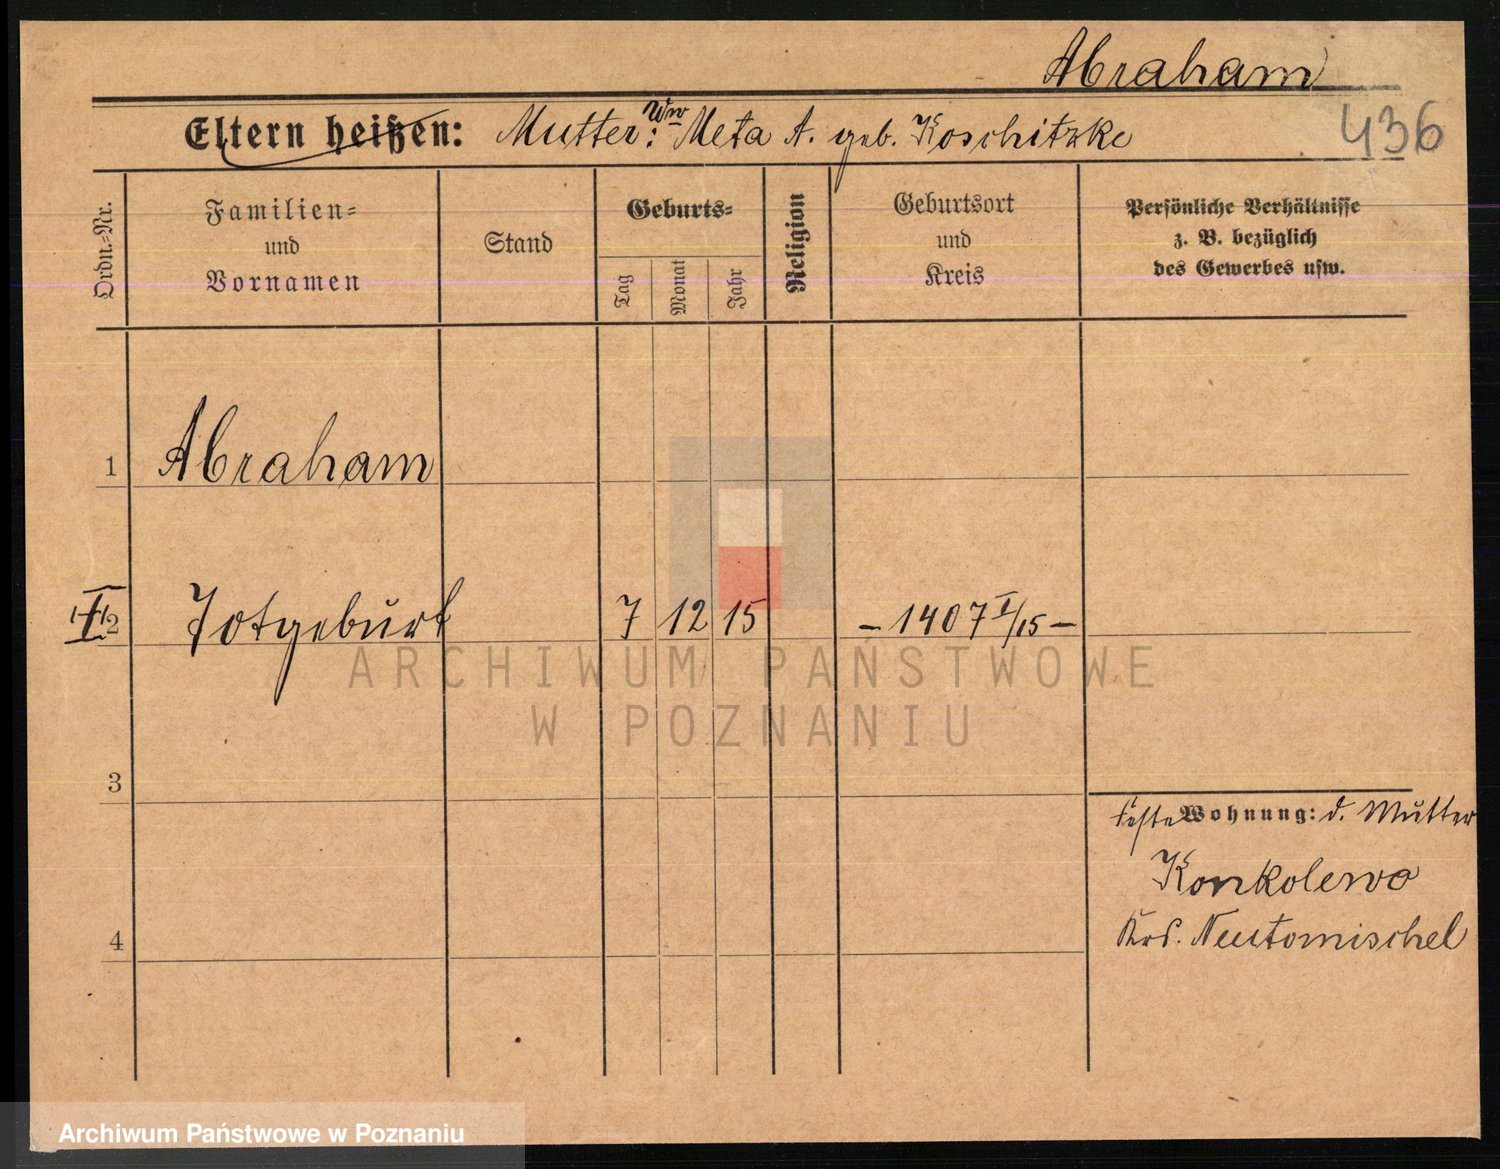 Abraham
436
Eltern heißen: Mutter: Ww Meta A. geb. Koschitzke
Ordn.=Nr.
Familien=
und
Vornamen
Stand
Geburts=
Tag
Monat
Jahr
Religion
Geburtsort
und
Kreis
Persönliche Verhältnisse
z. B. bezüglich
des Gewerbes usw.
1 Abraham
2 Totgeburt 7 12 15 – 1407 I/15 –
ARCHIWUM PAŃSTWOWE
W POZNANIU
3
feste Wohnung: d. Mutter
Konkolewo
Krs. Neutomischel
4
Archiwum Państwowe w Poznaniu